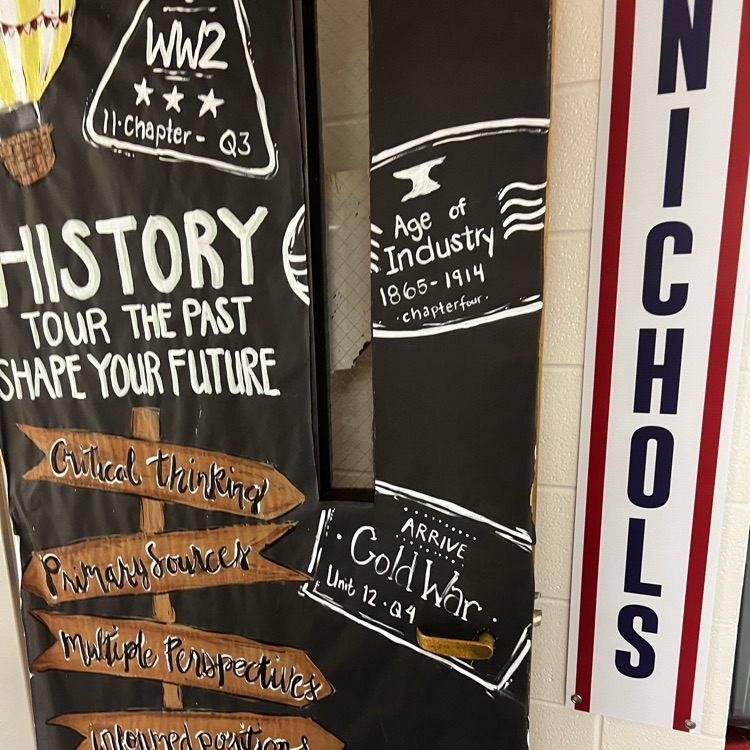 WW2
11·Chapter- Q3
HISTORY
TOUR THE PAST
SHAPE YOUR FUTURE
Critical thinking
Primary Sources
Multiple Perspectives
informed positions
Age of
Industry
1865-1914
·chapter four·
ARRIVE
·Cold War·
Unit 12·Q4
NICHOLS